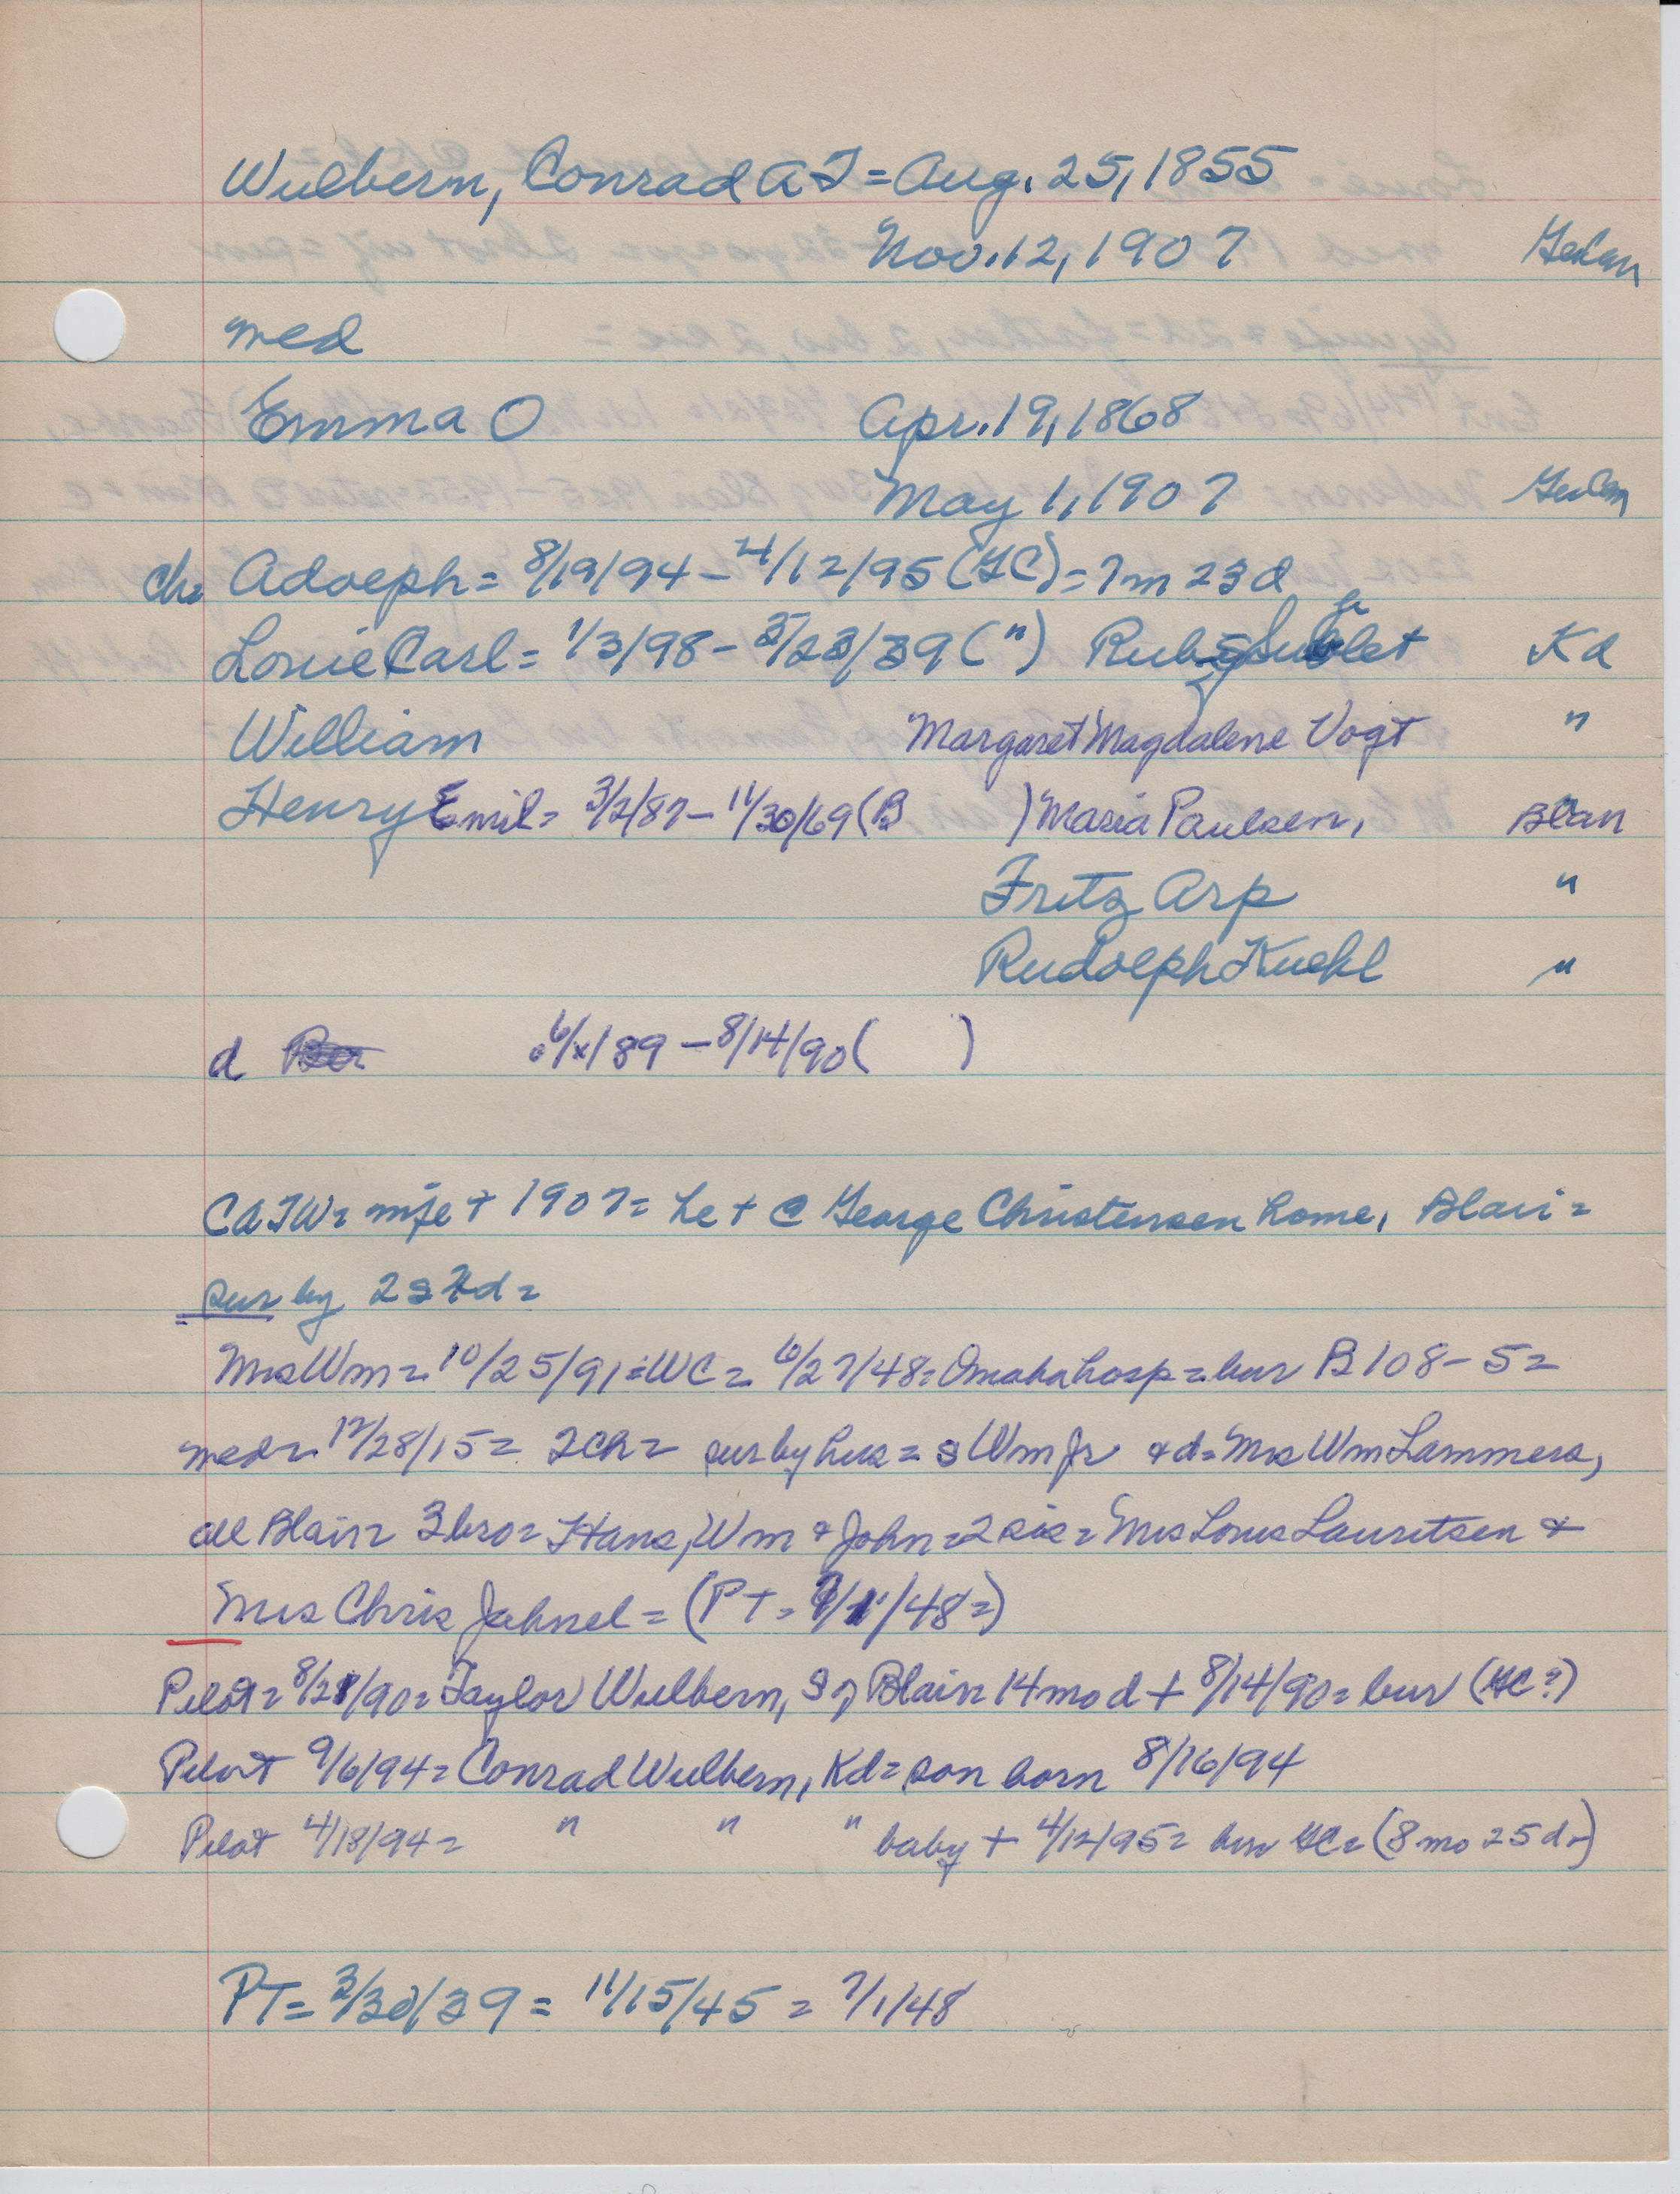 Wulbern, Conrad A T = Aug. 25, 1855
Nov. 12, 1907
med
Emma O Apr. 19, 1868
May 1, 1907
ch= Adolph = 8/19/94 - 4/12/95 (GC) = 7m 23d
Louie Carl = 1/3/98 - 3/23/39 (") Ruby Kd
William "Margaret" Magdalene Vogt "
Henry Emil = 3/2/87 - 11/30/69 (B ) Maria Paulsen, Blair
Fritz Arp "
Rudolph Kuehl "
d 6/x/89 - 8/14/90 ( )
CATW = wife + 1907 = he + @ George Christensen home, Blair =
= sur by 2 s d =
Mrs Wm = 10/25/91 = WC = 6/27/48 = Omaha hosp = bur B108-5 =
med = 12/28/15 = 2ch = sur by hus = s Wm Jr + d = Mrs Wm Lammers,
all Blair = 3 bro = Hans, Wm + John = 2 sis = Mrs Louis Lauritsen +
Mrs Chris Jahnel = (PT = /48 =)
Pilot = 8/21/90 = Taylor Wulbern, S of Blair = 14 mo d + 8/14/90 = bur (GC?)
Pilot 9/6/94 = Conrad Wulbern, Kd = son born 8/16/94
Pilot 4/18/94 = " " " baby + 4/12/95 = bur GC = (8 mo 25 d)
PT = 3/30/39 = 11/15/45 = 7/1/48